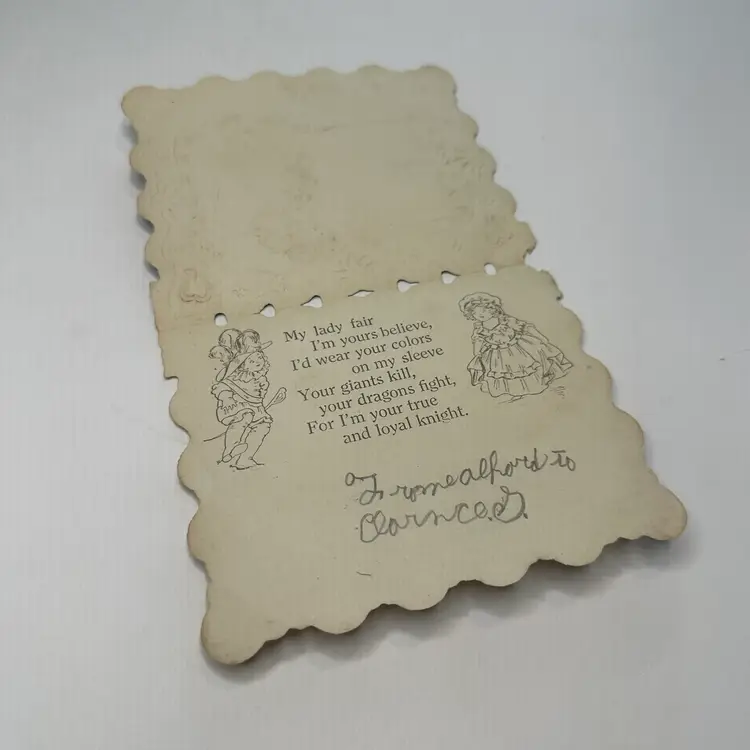 My lady fair
I'm yours believe,
I'd wear your colors
on my sleeve
Your giants kill,
your dragons fight,
For I'm your true
and loyal knight.
Fromealhord to
Clarnce.G.